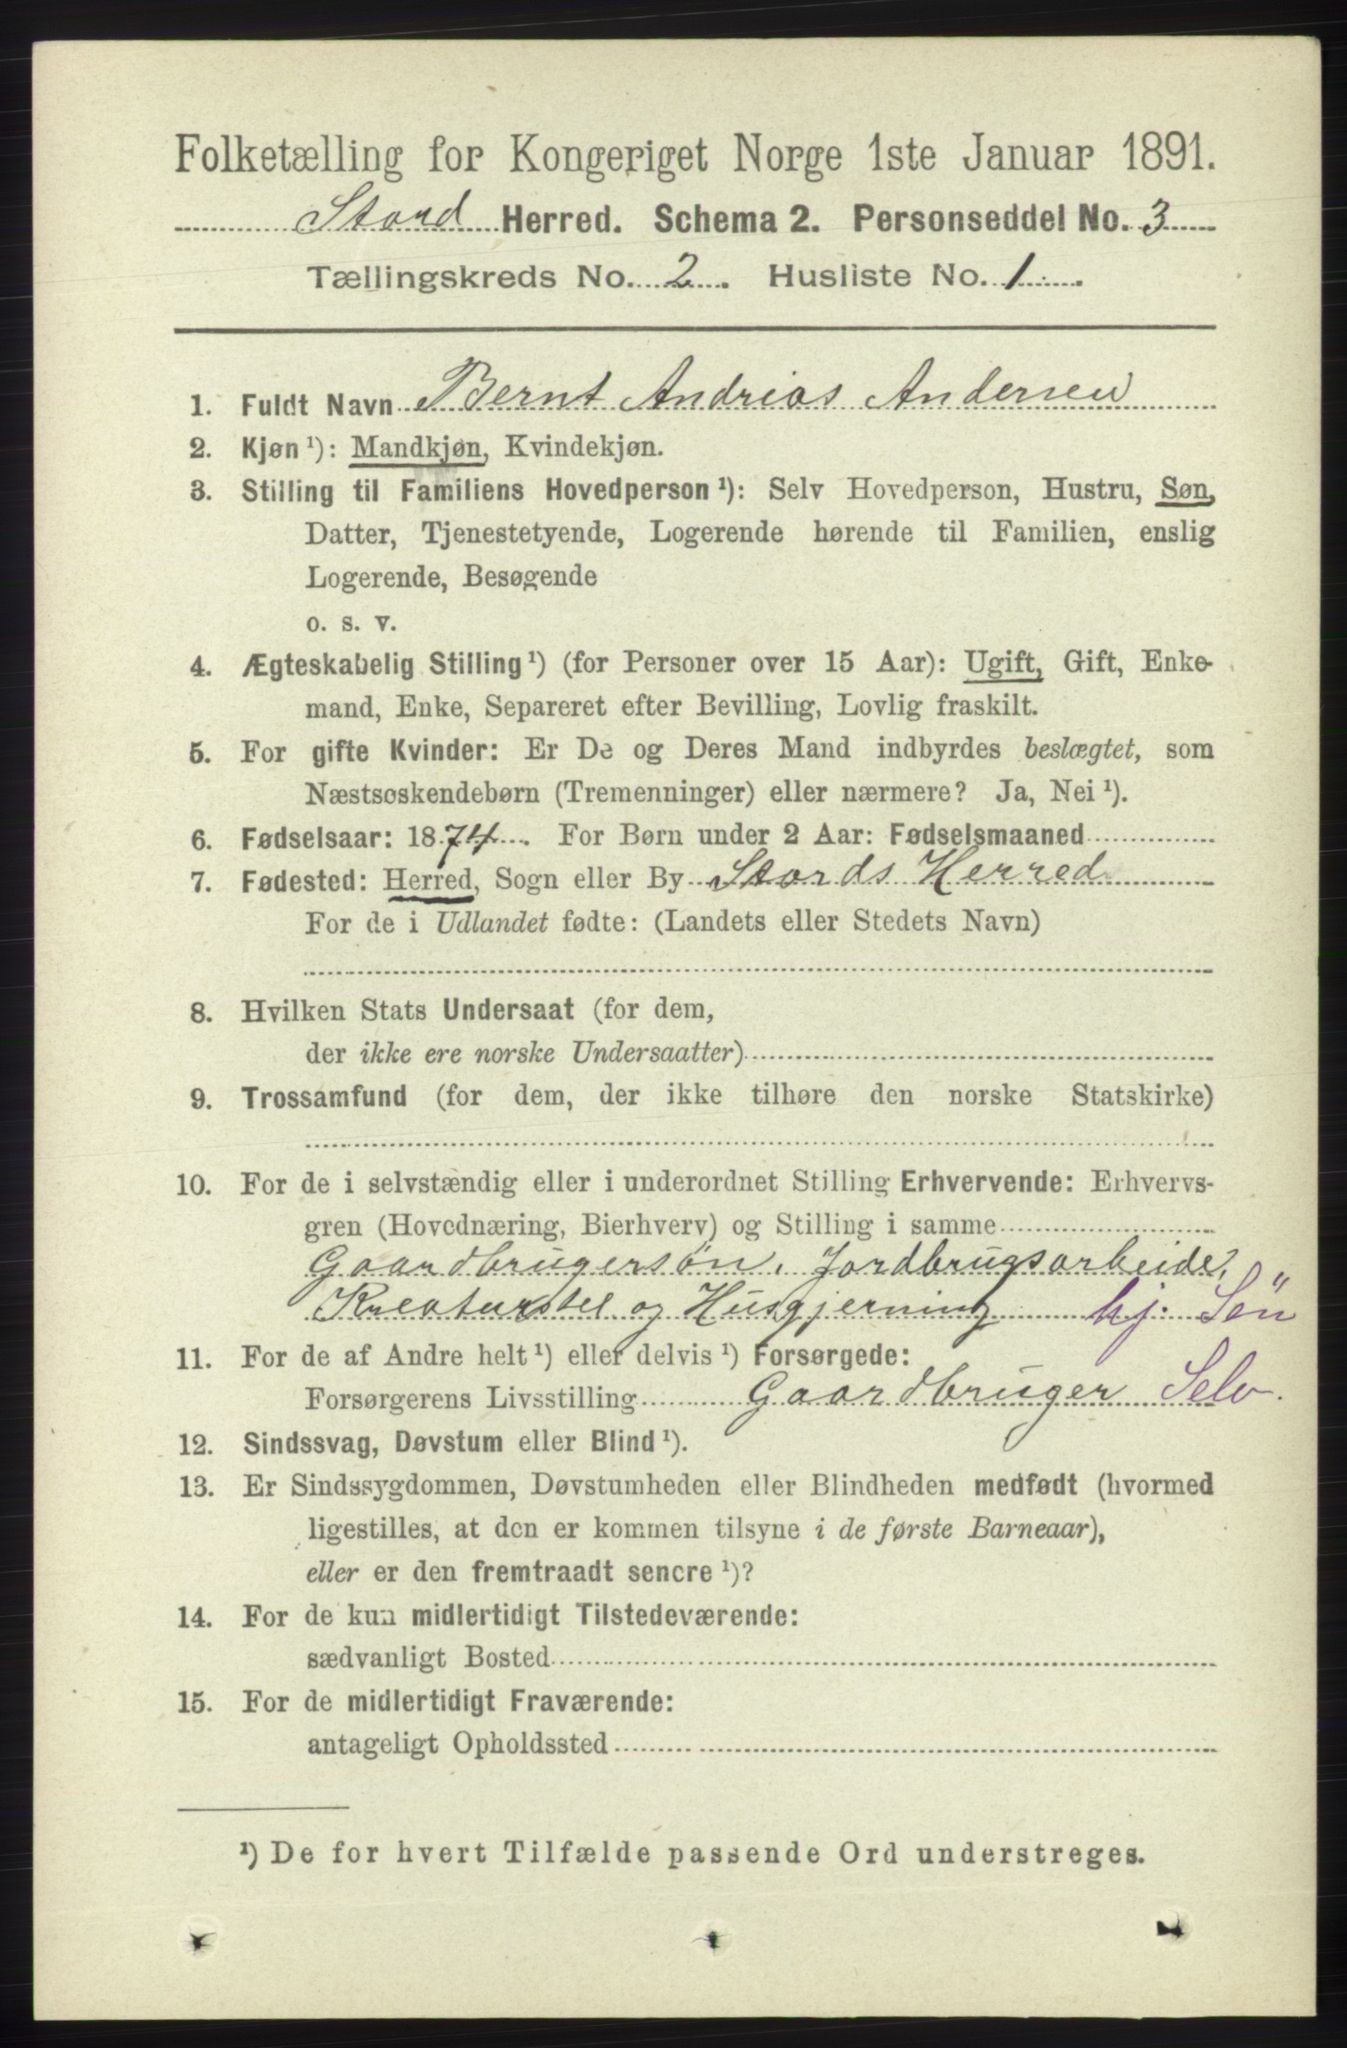 Folketælling for Kongeriget Norge 1ste Januar 1891.
Stord Herred. Schema 2. Personseddel No. 3
Tællingskreds No. 2. Husliste No. 1.
1. Fuldt Navn Bernt Andrias Andersen
2. Kjøn ¹): Mandkjøn, Kvindekjøn.
3. Stilling til Familiens Hovedperson ¹): Selv Hovedperson, Hustru, Søn,
Datter, Tjenestetyende, Logerende hørende til Familien, enslig
Logerende, Besøgende
o. s. v.
4. Ægteskabelig Stilling ¹) (for Personer over 15 Aar): Ugift, Gift, Enke-
mand, Enke, Separeret efter Bevilling, Lovlig fraskilt.
5. For gifte Kvinder: Er De og Deres Mand indbyrdes beslægtet, som
Næstsøskendebørn (Tremenninger) eller nærmere? Ja, Nei ¹).
6. Fødselsaar: 1874. For Børn under 2 Aar: Fødselsmaaned
7. Fødested: Herred, Sogn eller By Stords Herred
For de i Udlandet fødte: (Landets eller Stedets Navn)
8. Hvilken Stats Undersaat (for dem,
der ikke ere norske Undersaatter)
9. Trossamfund (for dem, der ikke tilhøre den norske Statskirke)
10. For de i selvstændig eller i underordnet Stilling Erhvervende: Erhvervs-
gren (Hovednæring, Bierhverv) og Stilling i samme
Gaardbrugersøn. Jordbrugsarbeide,
Kreaturstel og Husgjerning hj: Søn
11. For de af Andre helt ¹) eller delvis ¹) Forsørgede:
Forsørgerens Livsstilling Gaardbruger Selv.
12. Sindssvag, Døvstum eller Blind ¹).
13. Er Sindssygdommen, Døvstumheden eller Blindheden medfødt (hvormed
ligestilles, at den er kommen tilsyne i de første Barneaar),
eller er den fremtraadt senere ¹)?
14. For de kun midlertidigt Tilstedeværende:
sædvanligt Bosted
15. For de midlertidigt Fraværende:
antageligt Opholdssted
¹) De for hvert Tilfælde passende Ord understreges.